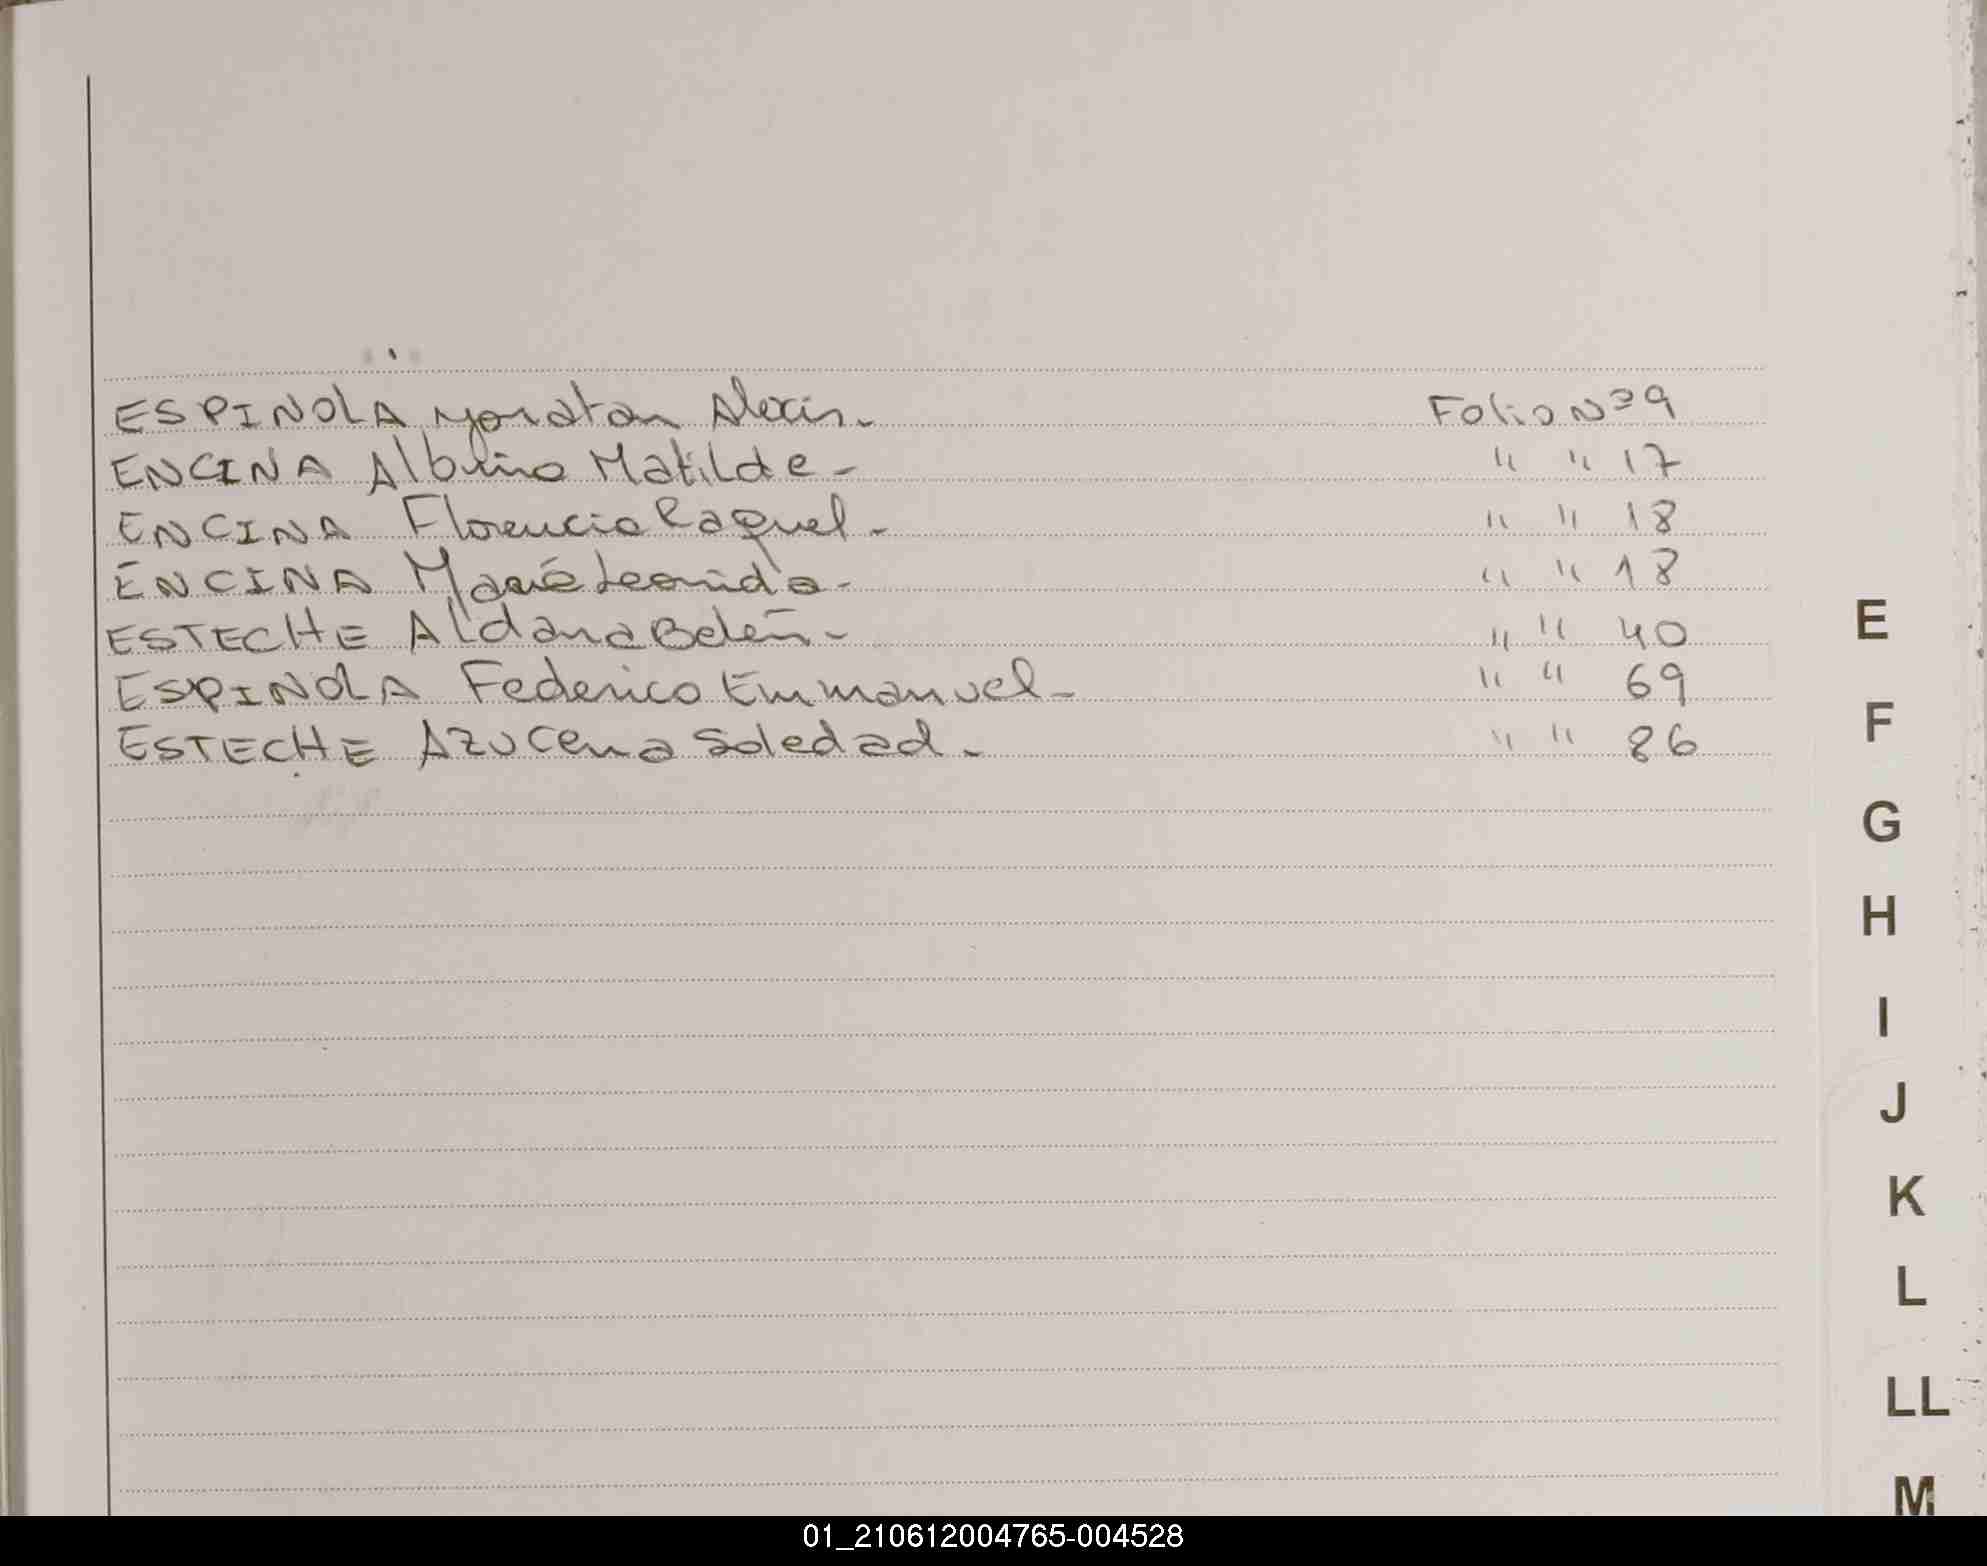 ESPINOLA Yonatan Alexis.- Folio Nº 9
ENCINA Albina Matilde- " " 17
ENCINA Florencia Raquel.- " " 18
ENCINA María Leonida- " " 18
ESTECHE Aldana Belén- " " 40
ESPINOLA Federico Emmanuel- " " 69
ESTECHE Azucena Soledad.- " " 86
E
F
G
H
I
J
K
L
LL
M
01_210612004765-004528